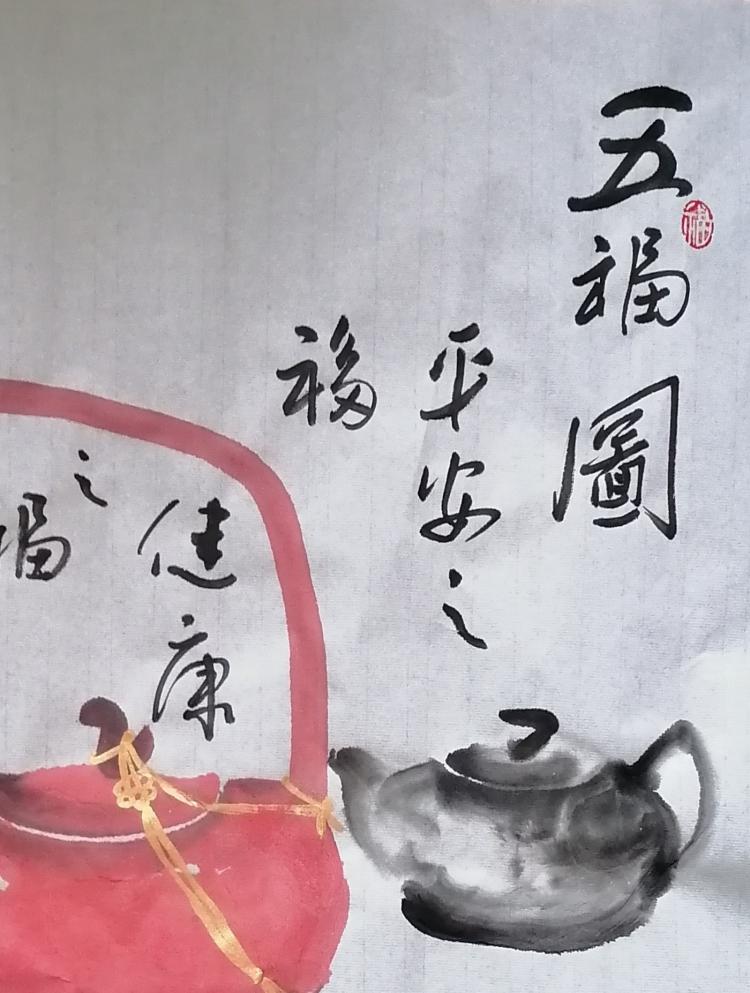 五福圖
平安之
福
健康
之福